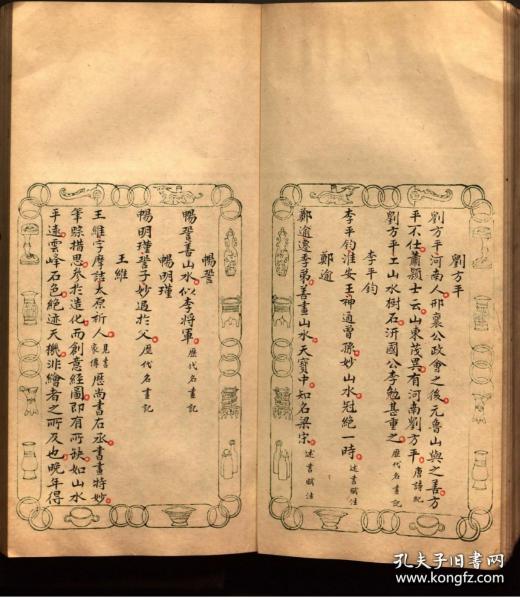 劉方平
劉方平河南人邢襄公政會之後元魯山與之善方
平不仕蕭穎士云山東茂異有河南劉方平唐詩紀
劉方平工山水樹石汧國公李勉甚重之歷代名畫記
李平鈞
李平鈞淮安王神通曾孫妙山水冠絕一時述書賦注
鄭逾
鄭逾遷季弟善畫山水天寶中知名梁宋述書賦注
暢
暢善山水似李將軍歷代名畫記
暢明瑾
暢明瑾子妙過於父歷代名畫記
王維
王維字摩詰太原祈人見書家傳歷尚書右丞書畫特妙
筆踪措思參於造化而創意經圖即有所缺如山水
平遠雲峰石色絕迹天機非繪者之所及也晚年得
孔夫子旧書网
kongfz.com